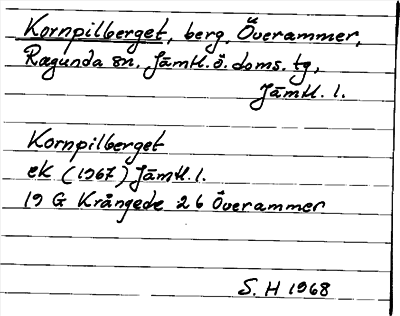 Kornpilberget, berg, Överammer,
Ragunda sn. Jämtl. ö. doms. tg,
Jämtl. l.
Kornpilberget
ek (1967) Jämtl. l.
19 G Krångede 26 Överammer
S. H 1968